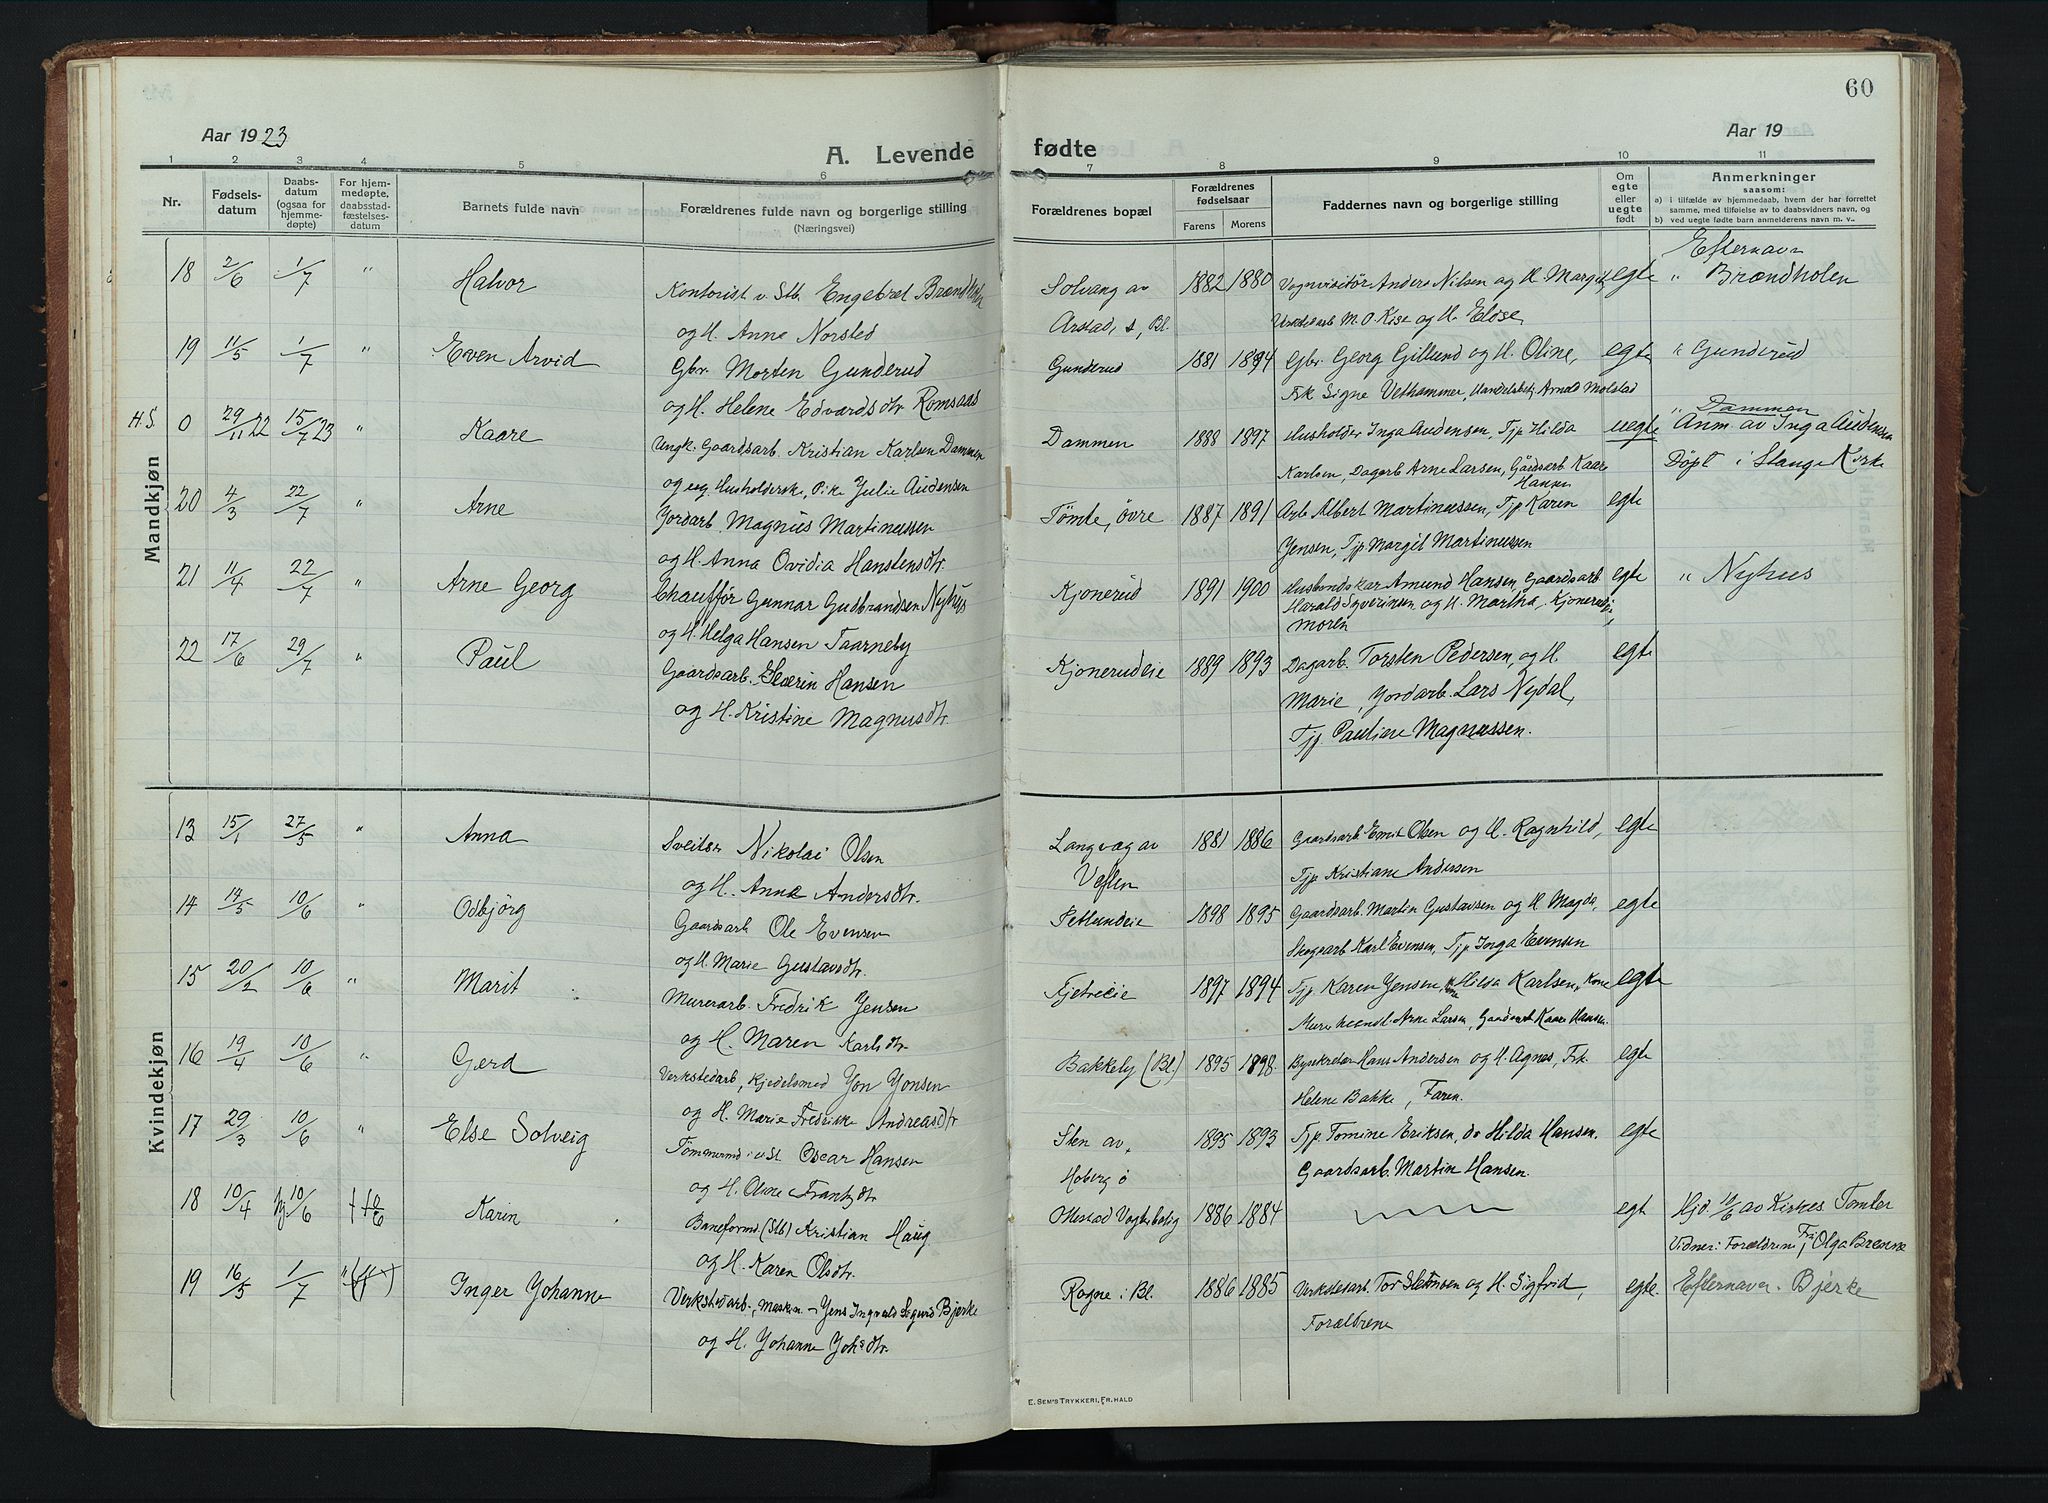 60
Aar 1923
Aar 19
A. Levende fødte
1 2 3 4 5 6 7 8 9 10 11
Nr.
Fødsels-
datum
Daabs-
datum
(ogsaa for
hjemme-
døpte)
For hjem-
medøpte,
daabsstad-
fæstelses-
datum
Barnets fulde navn
Forældrenes fulde navn og borgerlige stilling
(Næringsvei)
Forældrenes bopæl
Forældrenes
fødselsaar
Farens Morens
Faddernes navn og borgerlige stilling
Om
egte
eller
uegte
født
Anmerkninger
saasom:
a) i tilfælde av hjemmedaab, hvem der har forrettet
samme, med tilføielse av to daabsvidners navn, og
b) ved uegte fødte barn anmelderens navn m. v..
Mandkjøn
18 2/6 1/7 " Halvor
Kontorist v. Stb. Engebret Brændholen
og H. Anne Norsted
Solvang av
Arstad, s, Bl.
1882 1880
Vognvisitør Anders Nilsen og H. Margit,
Verkstedarb M. O. Kise og H. Eloise,
egte
Efternavn
" Brændholen
19 11/5 1/7 " Even Arvid
Gbr. Morten Gunderud
og H. Helene Edvardsdtr Romsaas
Gunderud
1881 1894
Gbr. Georg Gillund og H. Oline,
Frk Signe Vethammer, Handelsbetj Arnold Molstad
egte
" Gunderud
H.S. 0 29/11 22 15/7 23 " Kaare
Ungk. Gaardsarb. Kristian Karlsen Dammen
og ug. Husholderske, Pike Julie Audensen
Dammen
1888 1897
Husholder Inga Audensen, Tjp Hilda
Karlsen, Dagarb Arne Larsen, Gårdsarb Kaare
Hansen
uegte
" Dammen
Anm. av Inga Audensen
Døpt i Stange Kirke
20 4/3 22/7 " Arne
Jordarb Magnus Martinussen
og H. Anna Ovidia Hanstensdtr.
Tømte, øvre
1887 1891
Arb Albert Martinussen, Tjp Karen
Jensen, Tjp Margit Martinussen
egte
21 11/4 22/7 " Arne Georg
Chauffør Gunnar Gudbrandsen Nyhus
og H. Helga Hansen Taarneby
Kjonerud
1891 1900
Husbondskar Amund Hansen Gaardsarb
Harald Syverinsen og H. Martha, Kjonerudeie,
Moren
egte
" Nyhus
22 17/6 29/7 " Paul
Gaardsarb. Severin Hansen
og H. Kristine Magnusdtr.
Kjonerudeie
1889 1893
Dagarb. Torsten Pedersen, og H.
Marie, Jordarb. Lars Nydal,
Tjp. Pauline Magnussen.
egte
Kvindekjøn
13 15/1 27/5 " Anna
Sveitser Nikolai Olsen
og H. Anna Andersdtr.
Langvæg av
Veflen
1881 1886
Gaardsarb Emil Olsen og H. Ragnhild,
Tjp Kristiane Andersen
egte
14 14/5 10/6 " Odbjørg
Gaardsarb Ole Evensen
og H. Marie Gustavsdtr.
Petlundeie
1898 1895
Gaardsarb. Martin Gustavsen og H. Magda,
Skogsarb Karl Evensen, Tjp Inga Evensen
egte
15 20/2 10/6 " Marit
Murerarb. Fredrik Jensen
og H. Maren Karlsdtr.
Fjetreeie
1897 1894
Tjp Karen Jensen, Hilda Karlsen, Kone
Murerhaandl. Arne Larsen, Gaardsarb Kaare Hansen.
egte
16 19/4 10/6 " Gerd
Verkstedarb, Kjedelsmed Jon Jonsen
og H. Marie Fredrikke Andreasdtr
Bakkely (Bl)
1895 1898
Bysekretær Hans Andersen og H. Agnes, Frk.
Helene Bakke, Faren.
egte
17 29/3 10/6 " Else Solveig
Tømmermd. i v. St Oscar Hansen
og H. Oline Frantzdtr
Sten av,
Hoberg ø
1895 1893
Tjp. Tomine Eriksen, do Hilda Hansen.
Gaardsarb. Martin Hansen.
egte
18 10/4 hj 10/6 Karin
Baneformd (Stb) Kristian Haug
og H. Karen Olsdtr.
Ottestad Vogterbolig
1886 1884
egt
Hjd. 10/6 av Kirkes. Tomler
Vidner: Forældrene, Frk Olga Brenne
19 16/5 1/7 " Inger Johanne
Verkstedarb., Maskin - Jens Ingvald Sigurd Bjerke
og H. Johanne Johsdtr.
Rogne i Bl.
1886 1885
Verkstedarb. Tor Stensen og H. Sigfrid,
Forældrene
egte.
Efternavn. Bjerke
E. SEM'S TRYKKERI, FR.HALD